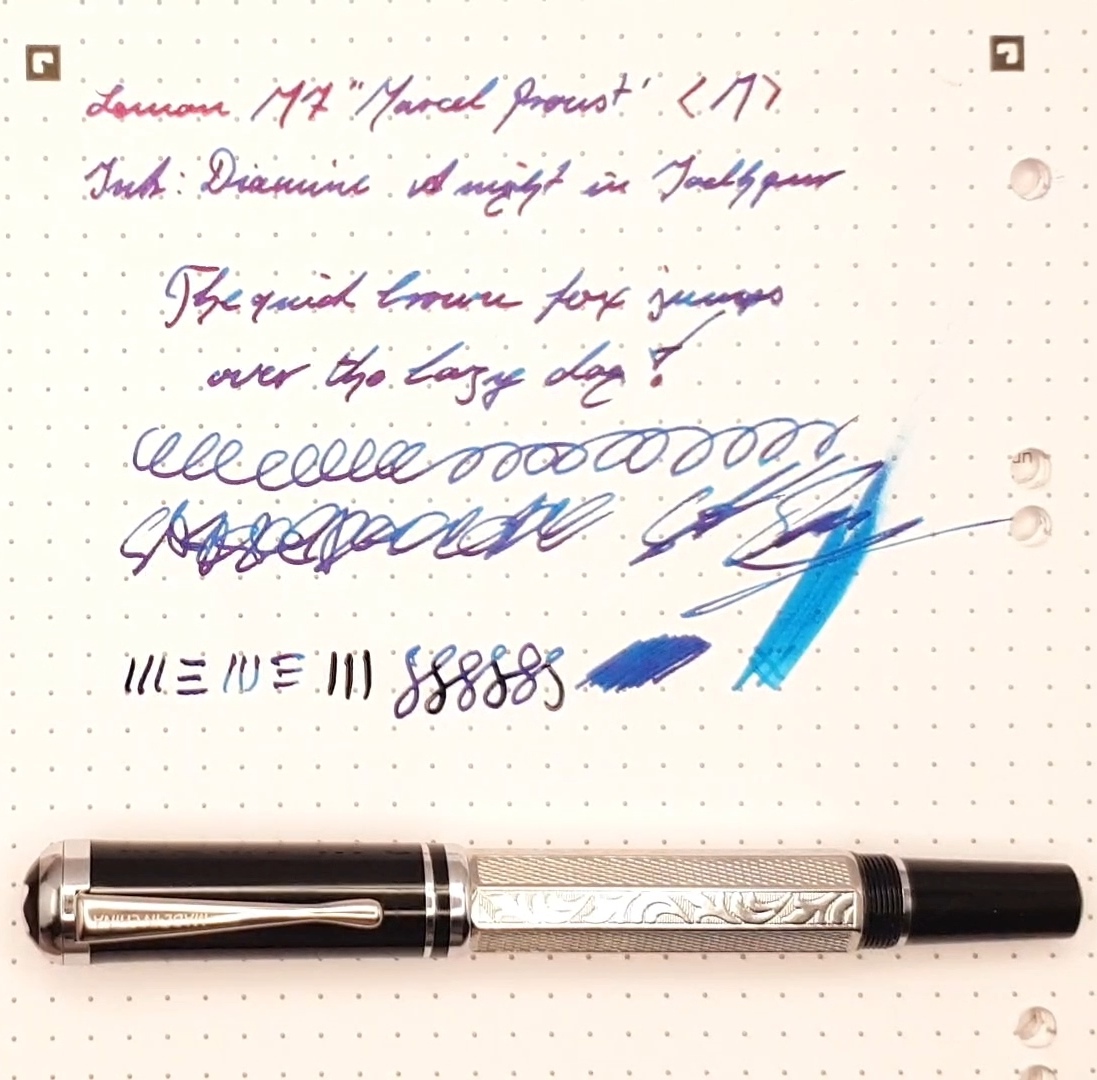 Lomon M7 "Marcel Proust" <M>
Ink: Diamine A night in Jodhpur
The quick brown fox jumps
over the lazy dog!
MADE IN CHINA